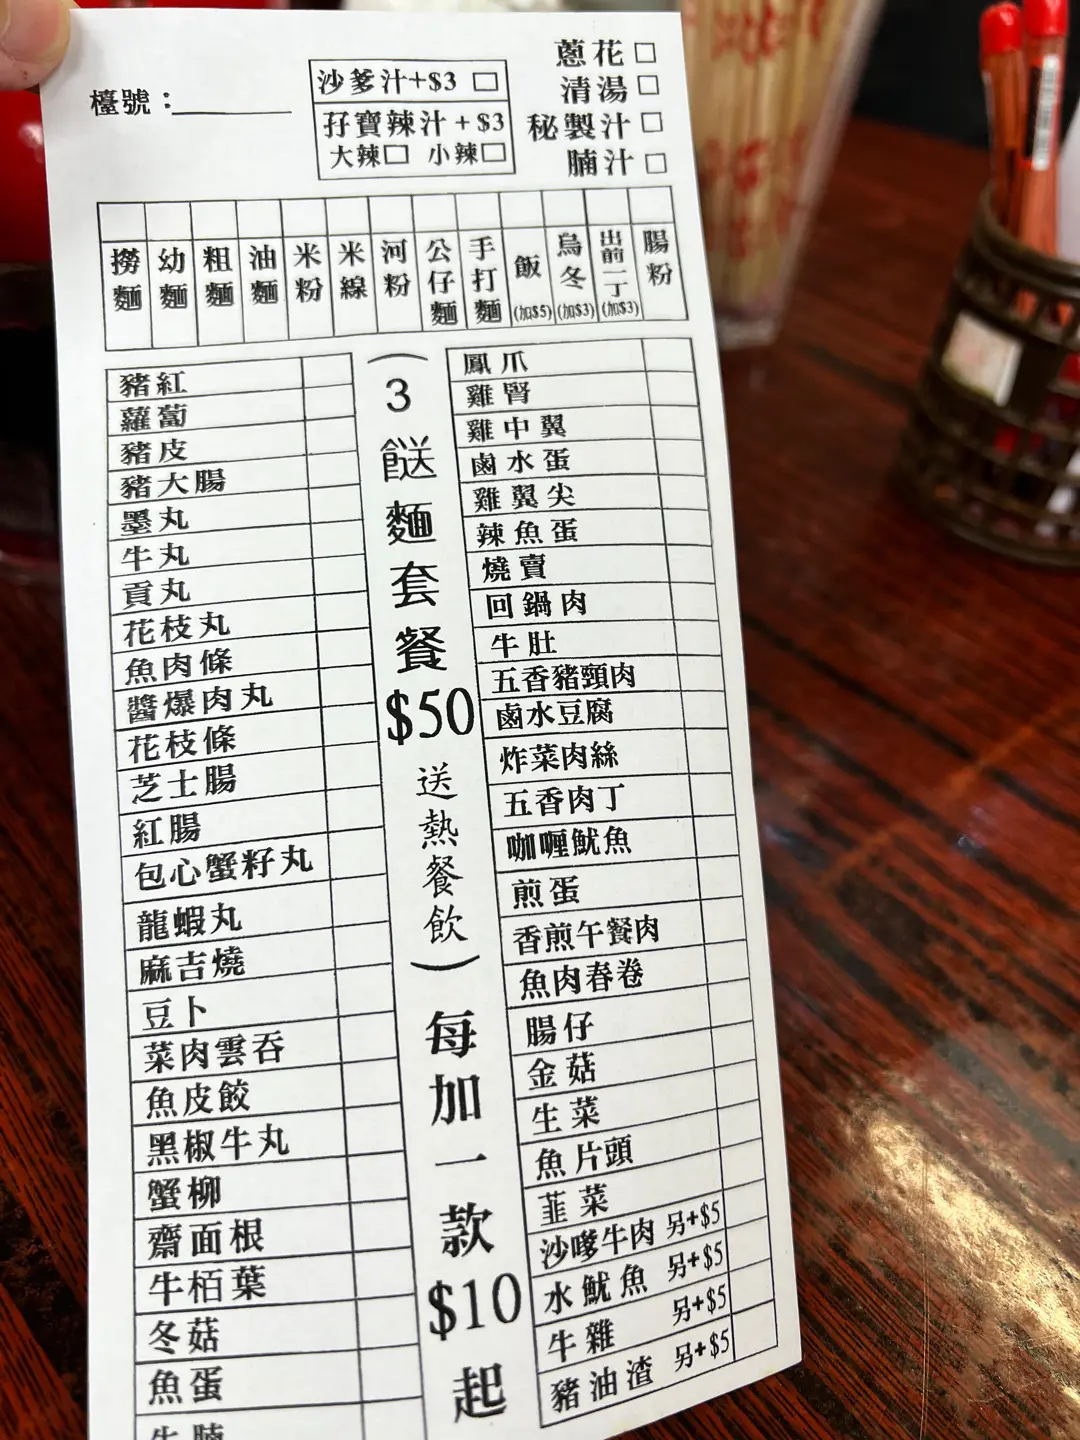 檯號：
沙爹汁+$3
孖寶辣汁+$3
大辣 小辣
蔥花
清湯
秘製汁
腩汁
撈麵
幼麵
粗麵
油麵
米粉
米線
河粉
公仔麵
手打麵
飯(加$5)
烏冬(加$3)
出前一丁(加$3)
腸粉
豬紅
蘿蔔
豬皮
豬大腸
墨丸
牛丸
貢丸
花枝丸
魚肉條
醬爆肉丸
花枝條
芝士腸
紅腸
包心蟹籽丸
龍蝦丸
麻吉燒
豆卜
菜肉雲吞
魚皮餃
黑椒牛丸
蟹柳
齋面根
牛栢葉
冬菇
魚蛋
牛腩
（3餸麵套餐$50送熱餐飲）每加一款$10起
鳳爪
雞腎
雞中翼
鹵水蛋
雞翼尖
辣魚蛋
燒賣
回鍋肉
牛肚
五香豬頸肉
鹵水豆腐
炸菜肉絲
五香肉丁
咖喱魷魚
煎蛋
香煎午餐肉
魚肉春卷
腸仔
金菇
生菜
魚片頭
韮菜
沙嗲牛肉 另+$5
水魷魚 另+$5
牛雜 另+$5
豬油渣 另+$5